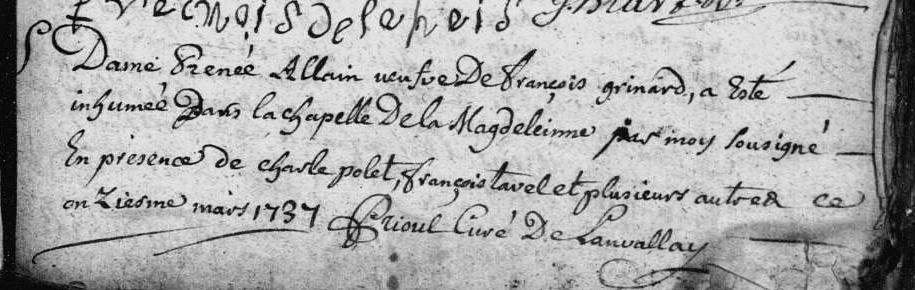 Dame Renée Allain veufve De françois grinard, a Esté
inhumée Dans la chapelle De la Magdeleinne par moy Sousigné
En presence de charle polet, françois tavel et plusieurs autres ce
onziesme mars 1737 Prioul Curé De Lanvallay